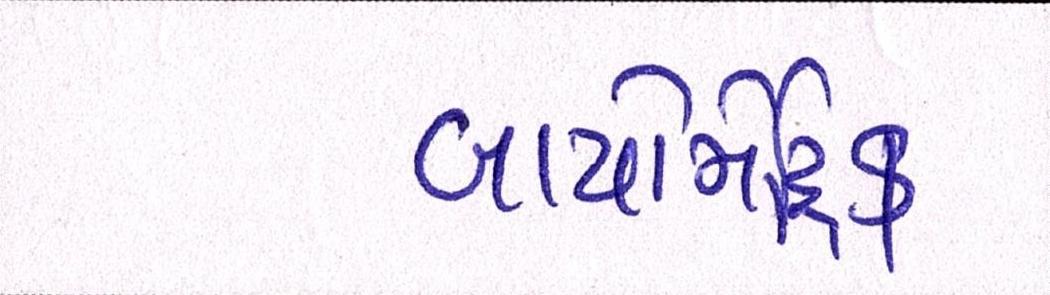 બાયોમેટ્રિક